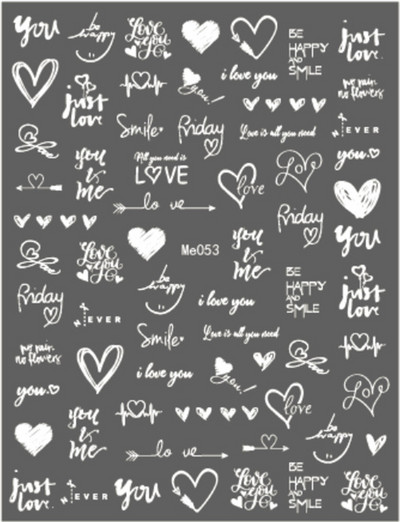 You
be
happy
Love
You
BE
HAPPY
AND
SMILE
just
love.
i love you
you!
no rain
no flowers
just
love
Smile
Friday
Love is all you need
NEVER
you
you
&
me
All you need is
LOVE
love
Love
lo ve
Friday
You
Me053
you
&
me
Love
You
be
happy
BE
HAPPY
AND
SMILE
just
love
Friday
i love you
NEVER
Smile
Love is all you need
no rain
no flowers
i love you
you!
you
Love
love
you
&
me
be
happy
lo ve
just
love.
NEVER
You
Love
You
BE
HAPPY
AND
SMILE
Love
You